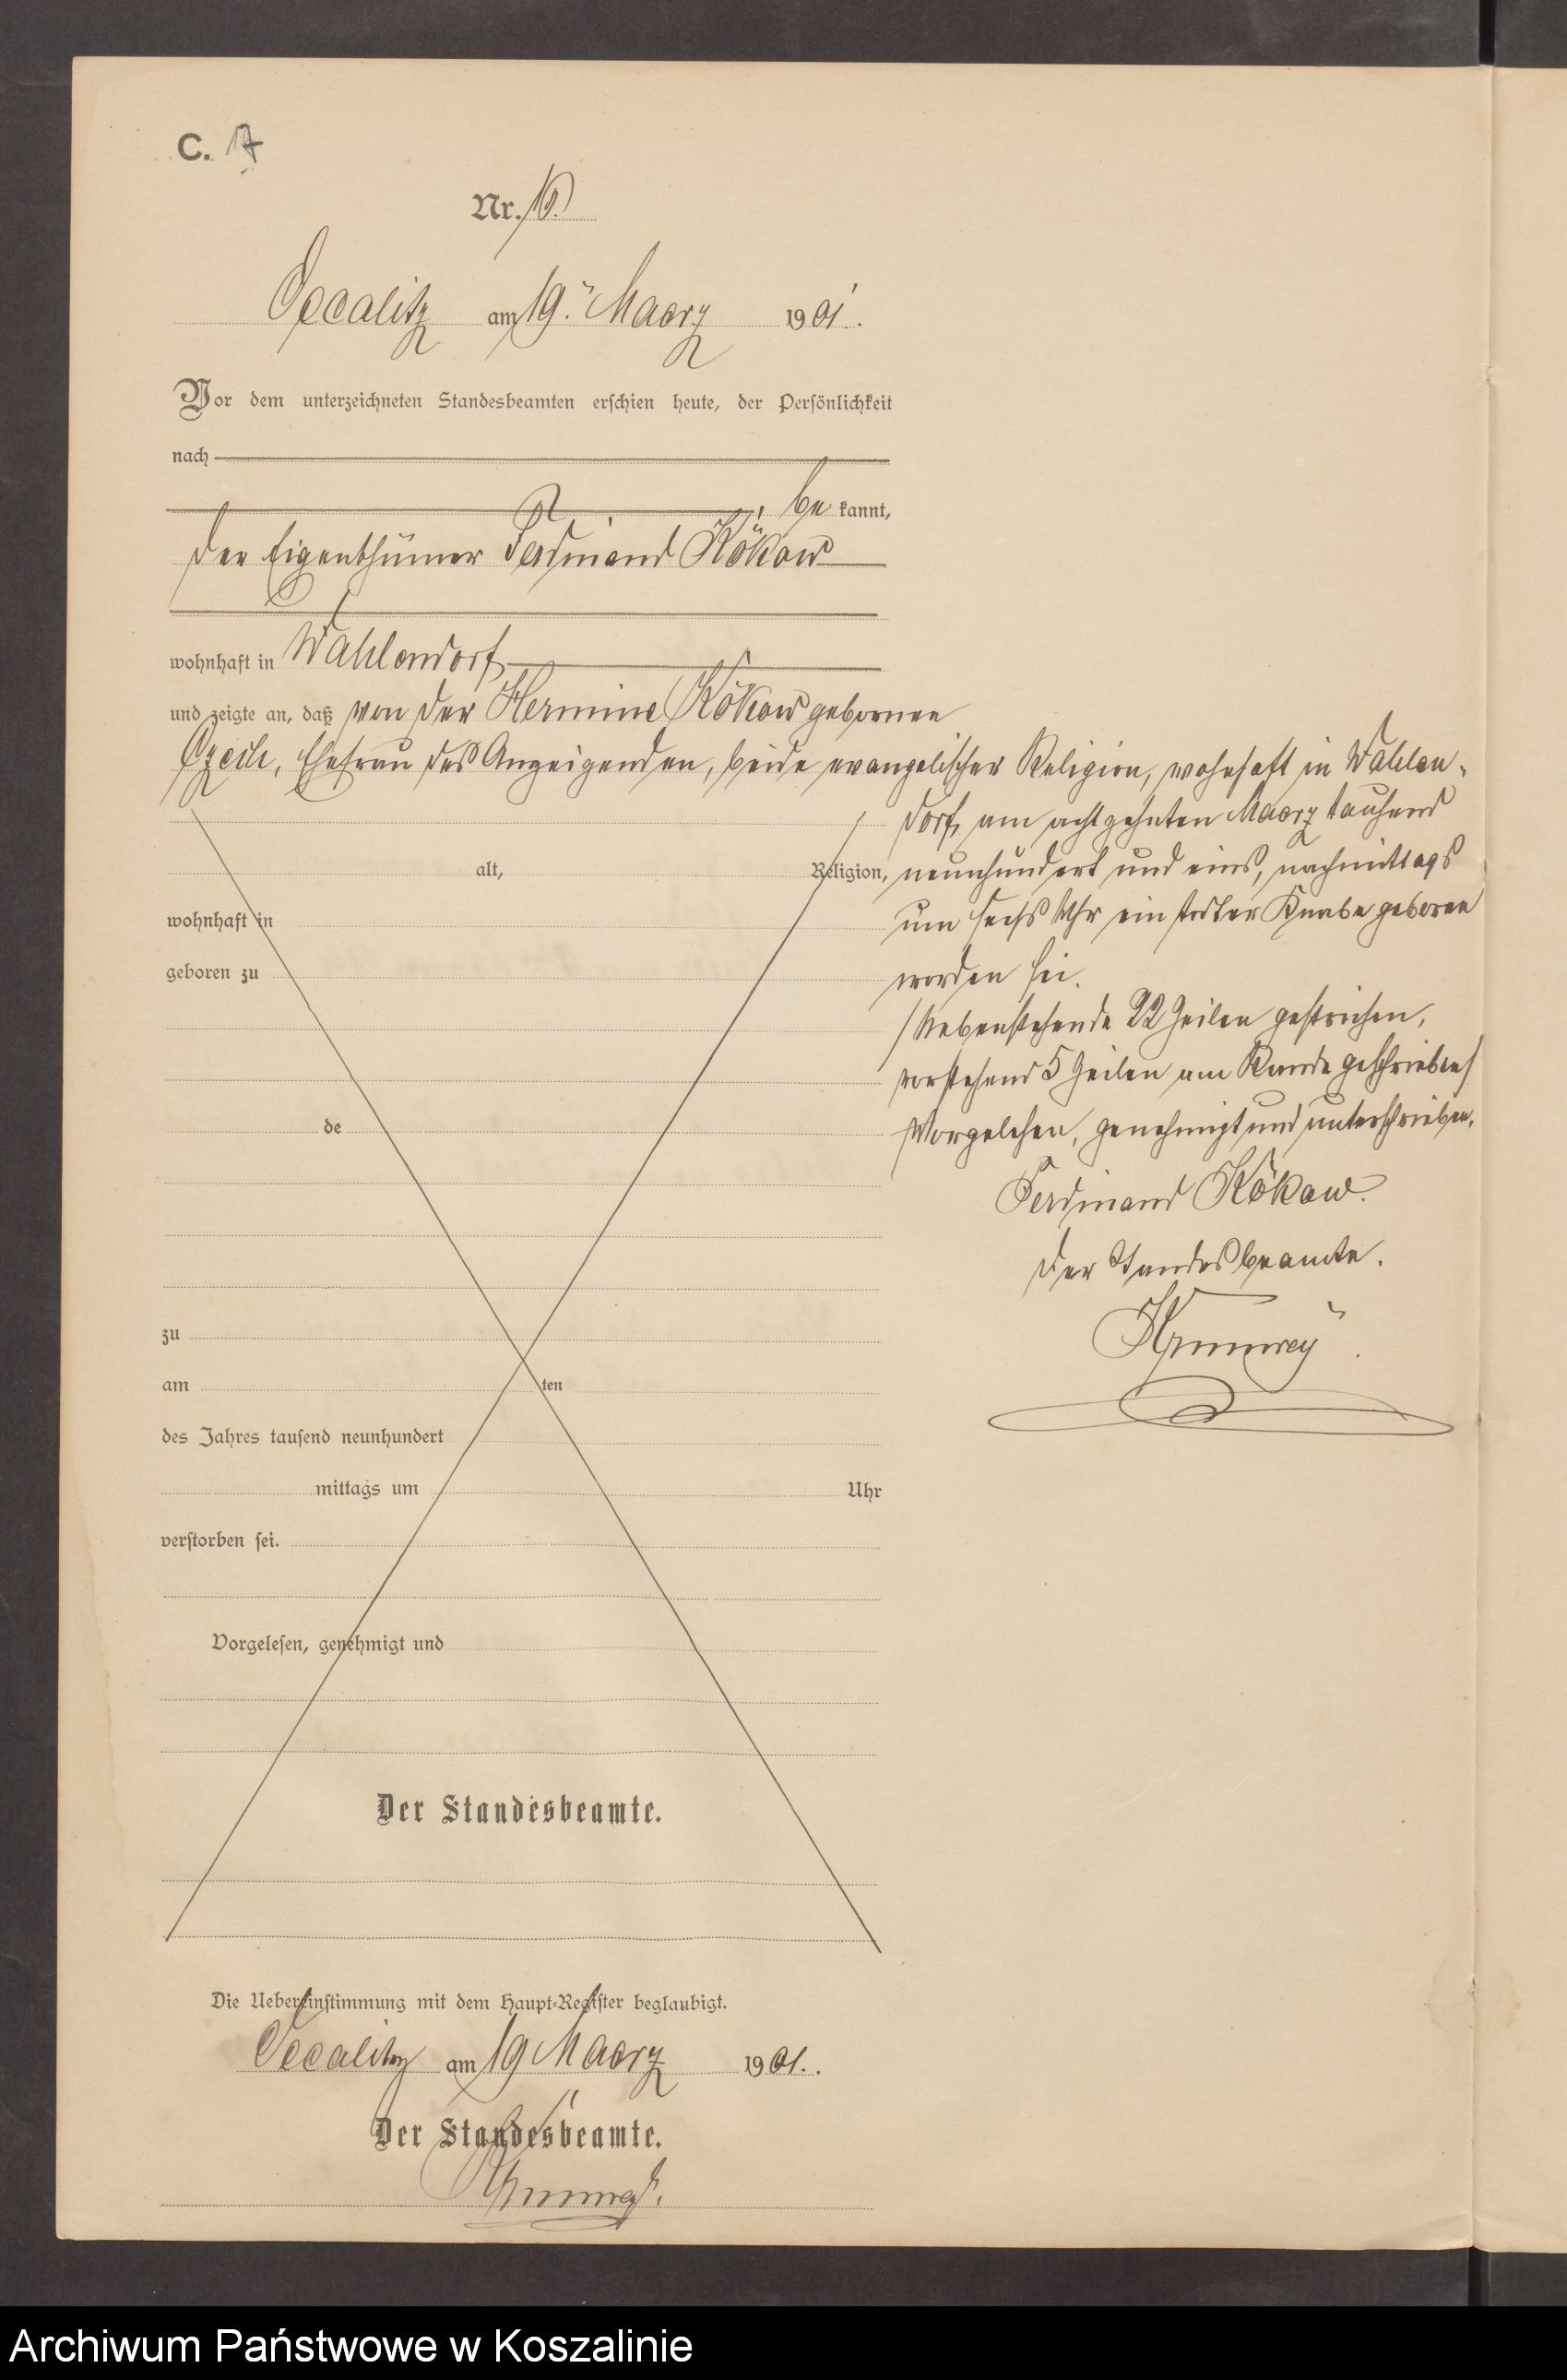 C. 17
Nr. 10.
Occalitz am 19. Maerz 1901.
Vor dem unterzeichneten Standesbeamten erschien heute, der Persönlichkeit
nach
be kannt,
der Eigenthümer Ferdinand Kökow
wohnhaft in Wahlendorf,
und zeigte an, daß von der Hermine Kökow geborenen
Czech, Ehefrau des Anzeigenden, beide evangelischer Religion, wohnhaft in Wahlen-
dorf, am achtzehnten Maerz tausend
alt, Religion, neunhundert und eins, nachmittags
wohnhaft in um sechs Uhr ein todter Knabe geboren
geboren zu worden sei.
/Nebenstehende 22 Zeilen gestrichen,
vorstehend 5 Zeilen am Rande geschrieben/
de Vorgelesen, genehmigt und unterschrieben.
Ferdinand Kökow.
Der Standesbeamte.
zu
am ten
des Jahres tausend neunhundert
mittags um Uhr
verstorben sei.
Vorgelesen, genehmigt und
Der Standesbeamte.
Die Uebereinstimmung mit dem Haupt-Register beglaubigt.
Occalitz am 19 Maerz 1901.
Der Standesbeamte.
Archiwum Państwowe w Koszalinie